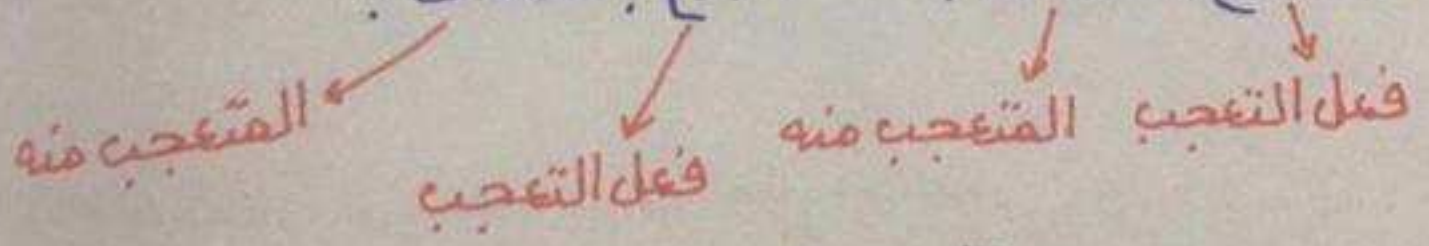 فعل التعجب المتعجب منه
فعل التعجب المتعجب منه